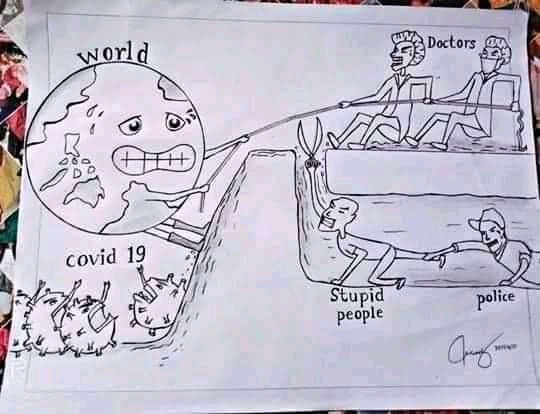 world
Doctors
covid 19
Stupid
people
police